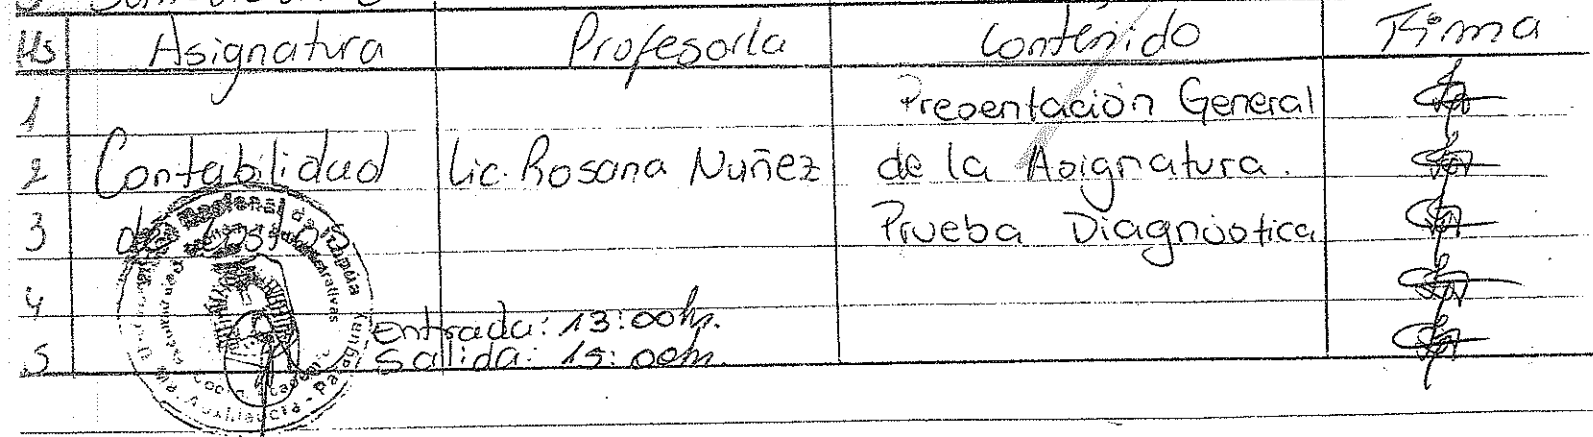 Hs Asignatura Profesor/a Contenido Firma
1 Presentación General
2 Contabilidad Lic. Rosana Nuñez de la Asignatura.
3 de Costos Prueba Diagnóstica
4
entrada: 13:00h.
5 Salida: 15:00h.